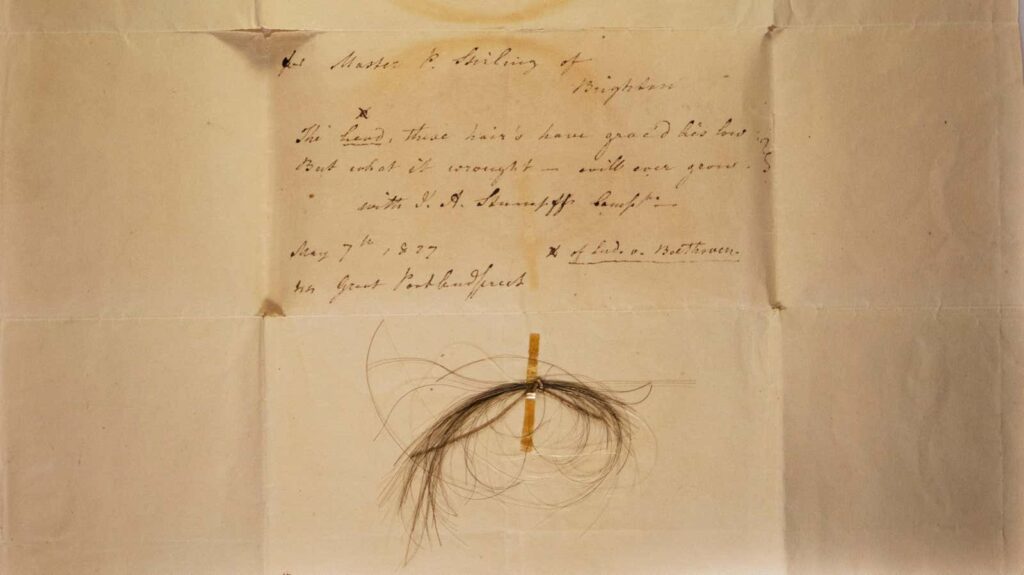 for Master P. Stirling of
Brighton
x
The head, these hair's have grac'd lies low
But what it wrought — will ever grow.
with J. A. Stumpff Compts
May 7th, 1827
x of Lud. v. Beethoven.
Great Portland street